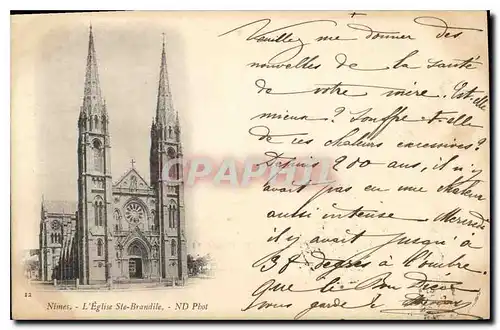 Veuillez me donner des
nouvelles de la santé
de votre mère. Est-elle
mieux ? Souffre-t-elle
de ces chaleurs excessives ?
Depuis 200 ans, il n'y
avait pas eu une chaleur
aussi intense. Mercredi
il y avait jusqu'à
38 degrés à l'ombre.
Que le Bon Dieu
vous garde
CPARAMA
22
Nimes. - L'Église Ste-Brandile. - ND Phot